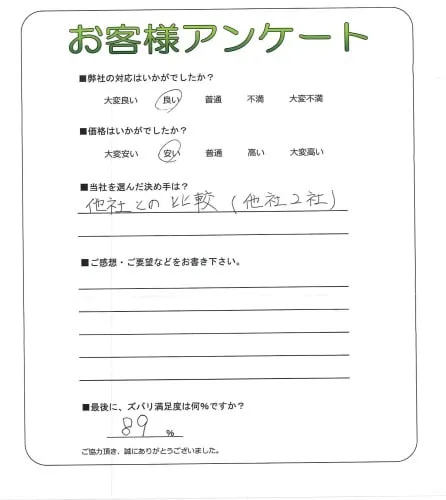 お客様アンケート
■弊社の対応はいかがでしたか?
大変良い 良い 普通 不満 大変不満
■価格はいかがでしたか?
大変安い 安い 普通 高い 大変高い
■当社を選んだ決め手は?
他社との比較(他社2社)
■ご感想・ご要望などをお書き下さい。
■最後に、ズバリ満足度は何%ですか?
89 %
ご協力頂き、誠にありがとうございました。